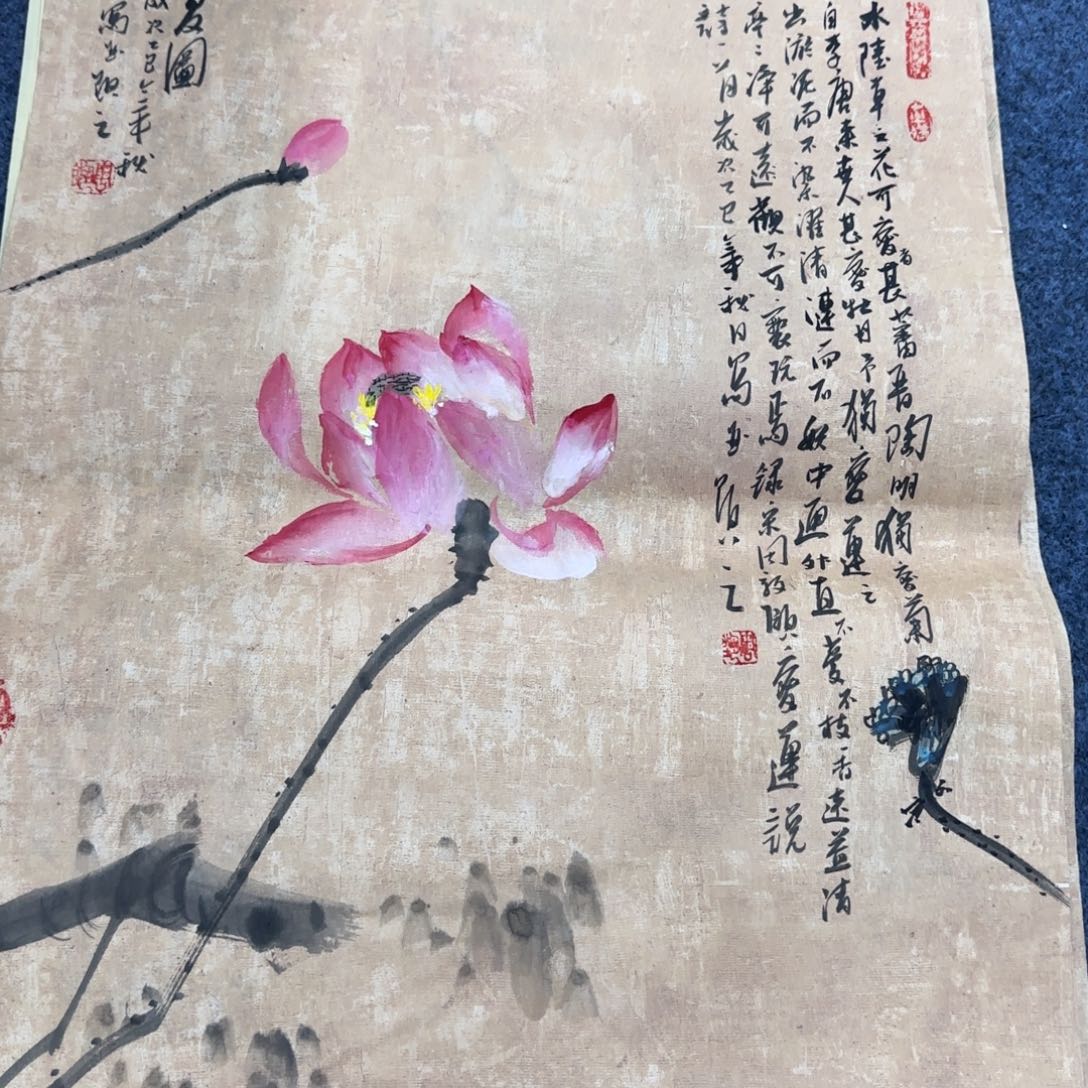 水陸草之花可愛者甚蕃晋陶明獨愛菊
自李唐來世人甚愛牡丹予獨愛蓮之
出淤泥而不染濯清漣而不妖中通外直不蔓不枝香遠益清
亭亭淨可遠觀不可褻玩焉録宋周敦頤愛蓮說
歲次乙巳年秋日寫
圖
歲次乙巳年秋
寫
之